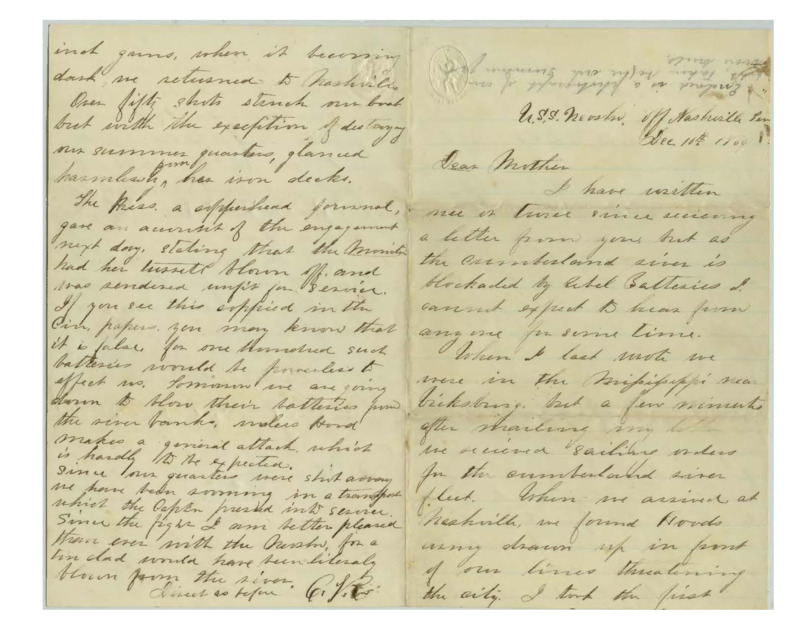 inch guns, when it becoming
dark we returned to Nashville
Over fifty shots struck our boat
but with the exception of destroying
our summer quarters, glanced
harmlessly from her iron decks.
The Press. a copperhead journal,
gave an account of the engagement
next day, stating that the Monitor
had her turrets blown off and
was rendered unfit for service.
If you see this coppied in the
Cin. papers. you may know that
it is false, for one hundred such
batteries would be powerless to
effect us. Tomorrow we are going
down to blow their batteries from
the river banks, unless Hood
makes a general attack, which
is hardly to be expected.
Since our quarters were shot away
we have been rooming in a transport
which the Captn pressed into service.
Since the fight I am better pleased
than ever with the Neosho, for a
tin clad would have been literaly
blown from the river.
Direct as before
Enclosed is a photograph of our
taken before our summer
were built.
U.S.S. Neosho. off Nashville Ten
Dec 10th 1864
Dear Mother
I have written
once or twice since receiving
a letter from you, but as
the cumberland river is
blockaded by rebel Batteries I
cannot expect to hear from
any one for some time.
When I last wrote we
were in the Mississippi near
Vicksburg, but a few minutes
after mailing my letter
we recieved sailing orders
for the cumberland river
fleet. When we arrived at
Nashville, we found Hoods
army drawn up in front
of our lines threatening
the city. I took the first